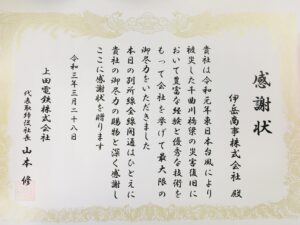 感謝状
伊岳商事株式会社 殿
貴社は令和元年東日本台風により
被災した千曲川橋梁の災害復旧に
おいて豊富な経験と優秀な技術を
もって会社を挙げて最大限の
御尽力をいただきました
本日の別所線全線開通はひとえに
貴社の御尽力の賜物と深く感謝し
ここに感謝状を贈ります
令和三年三月二十八日
上田電鉄株式会社
代表取締役社長 山本修